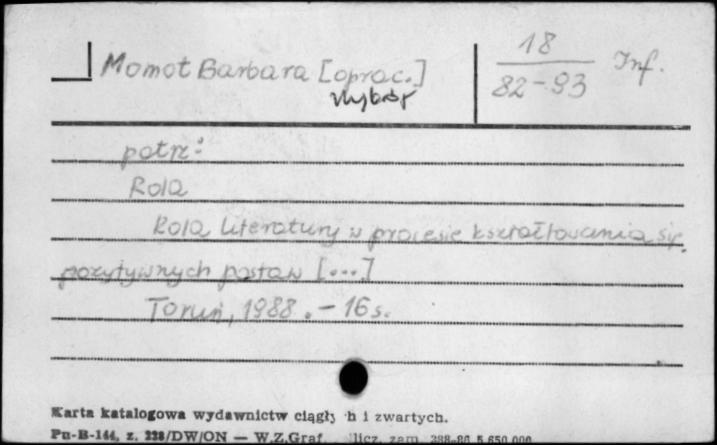 Momot Barbara [oprac.]
wybór
18
82-93
Inf.
patrz:
Rola
Rola literatury w procesie kształtowania się
pozytywnych postaw [...]
Toruń, 1988. - 16 s.
Karta katalogowa wydawnictw ciągły h i zwartych.
Pu-B-144, z. 238/DW/ON — W.Z.Graf. licz. zam.